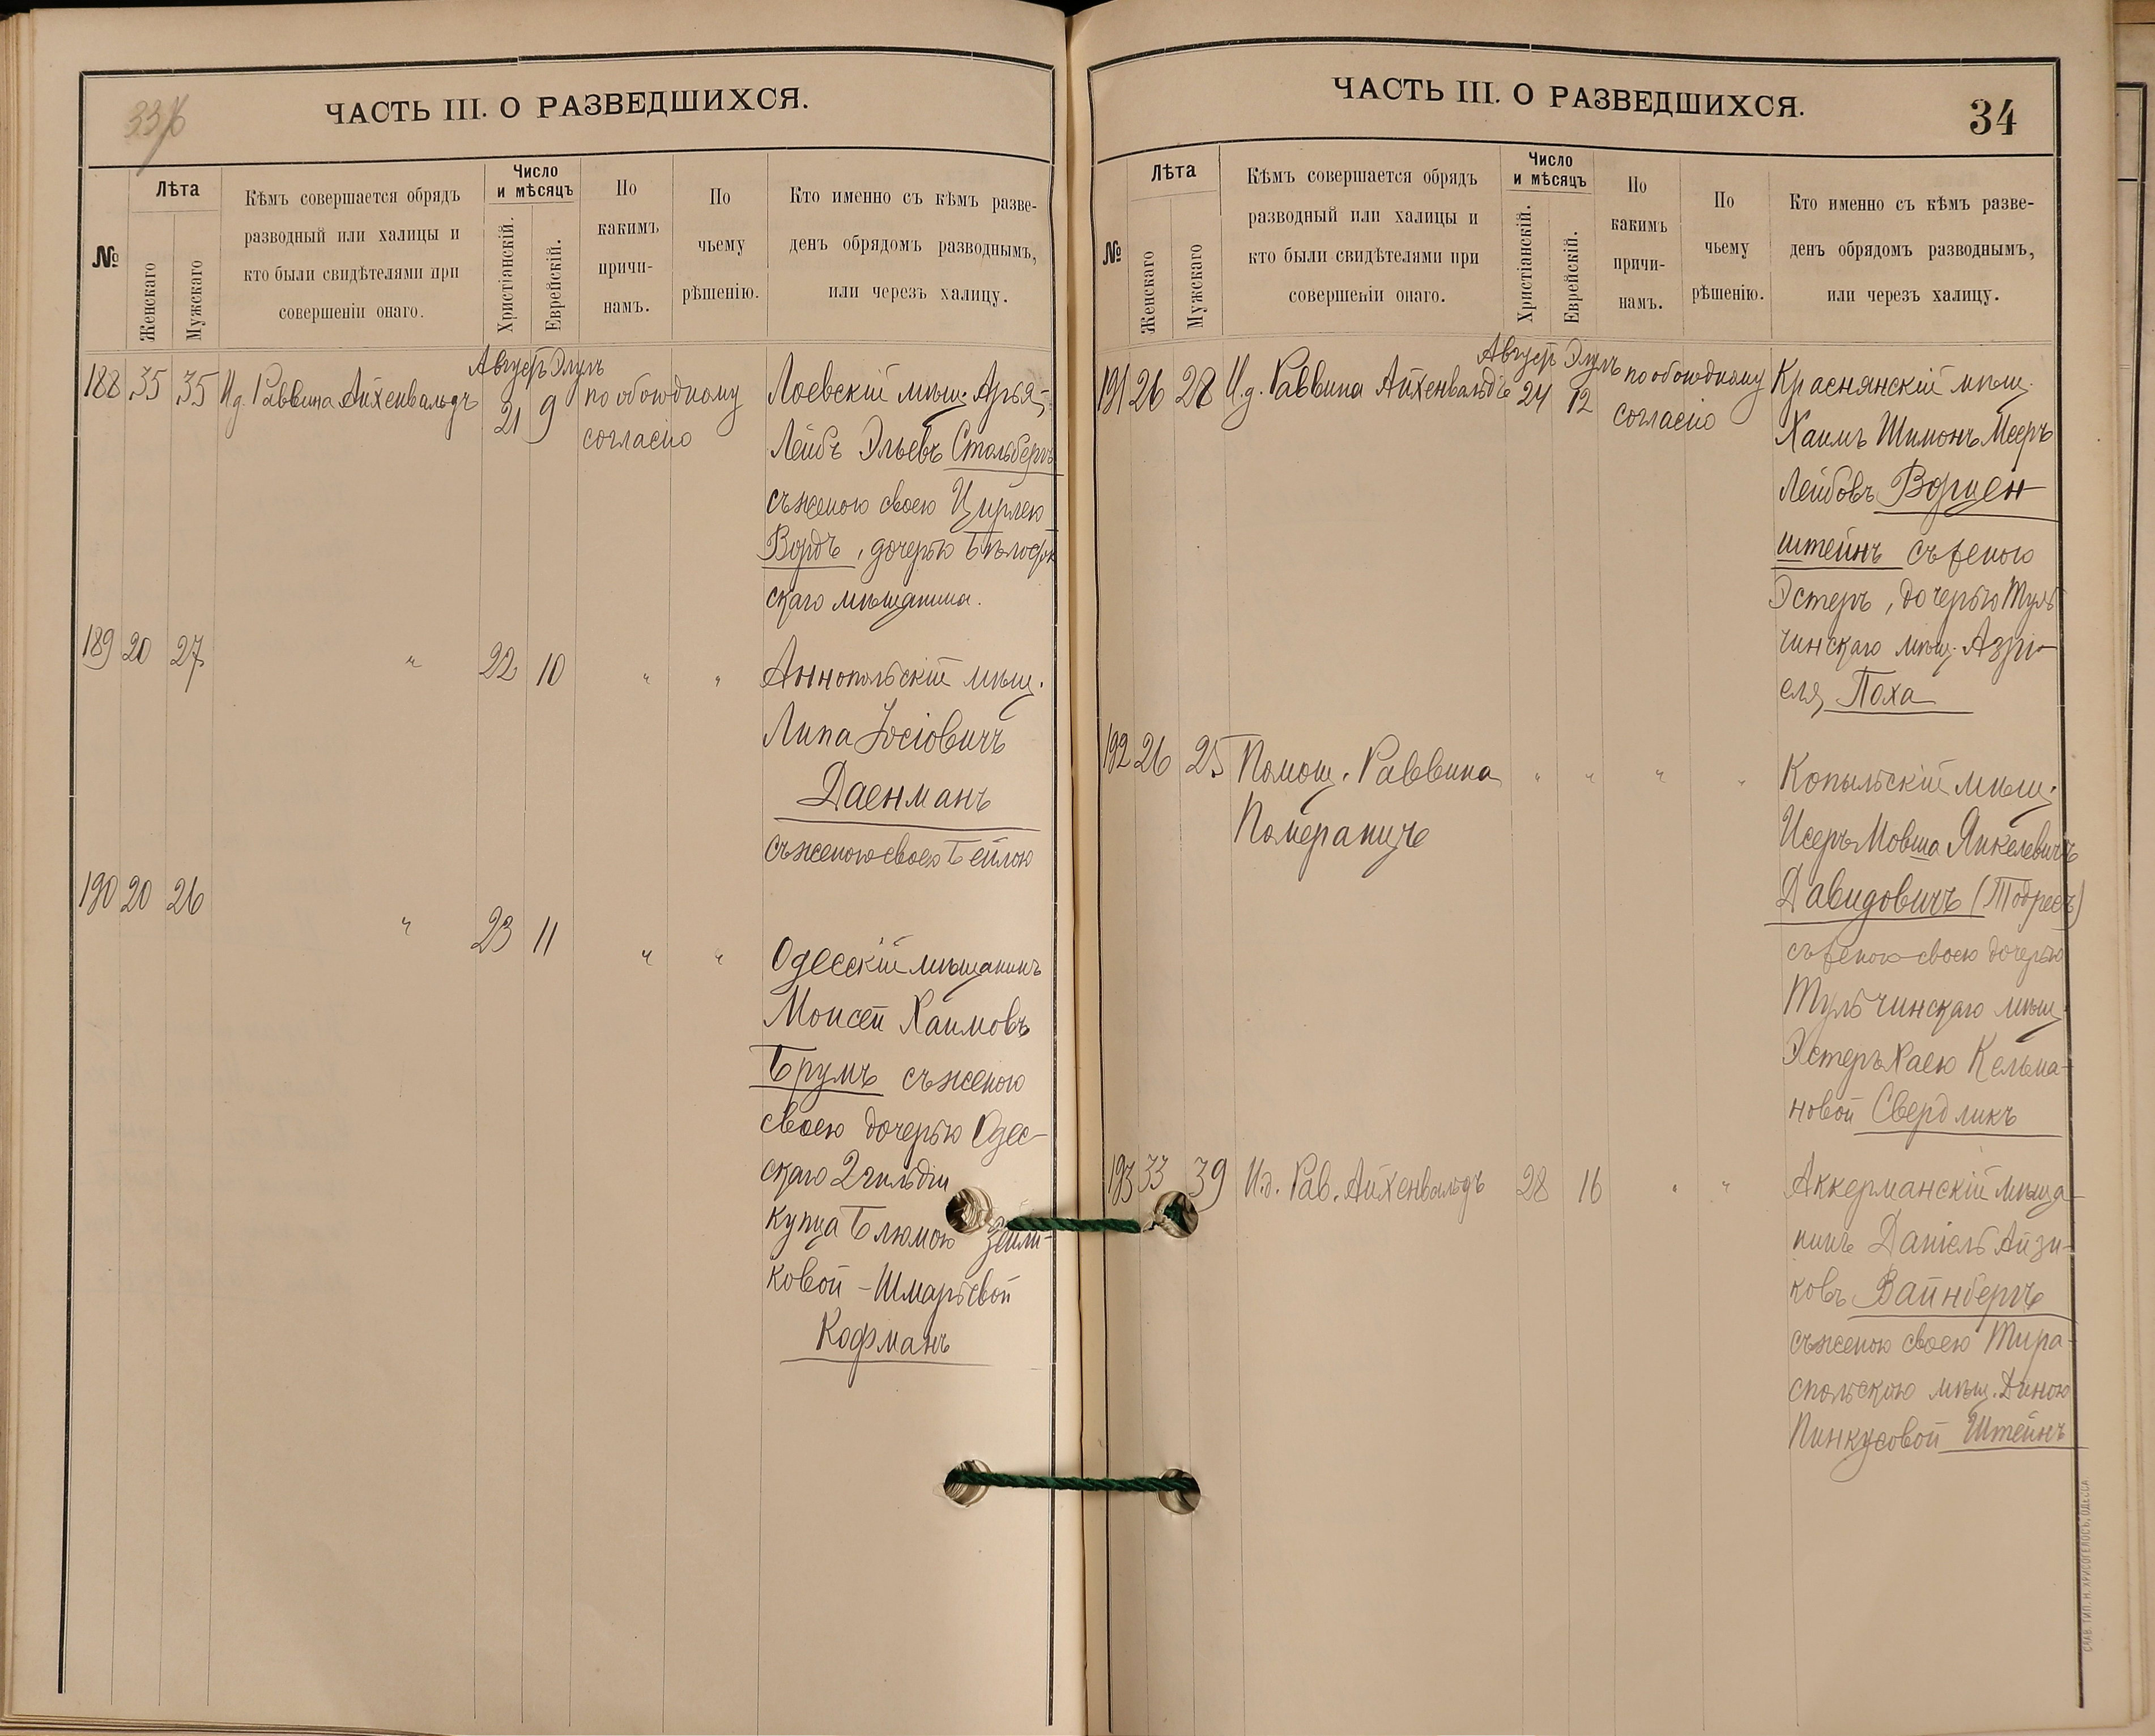 ЧАСТЬ III. О РАЗВЕДШИХСЯ.
№
Лѣта
Женскаго
Мужскаго
Кѣмъ совершается обрядъ
разводный или халицы и
кто были свидѣтелями при
совершеніи онаго.
Число
и мѣсяцъ
Христіанскій.
Еврейскій.
По
какимъ
причи-
намъ.
По
чьему
рѣшенію.
Кто именно съ кѣмъ разве-
денъ обрядомъ разводнымъ,
или черезъ халицу.
Август Элулъ
188 35 35 И.д. Раввина Айхенвальдъ 21 9 по обоюдному
согласію
Лоевскій мѣщ. Арья-
Лейбъ Эльевъ Стольберъ
съ женою своею Цирлею
Вордъ, дочерью
скаго мѣщанина.
189 20 27 " 22 10 " "
Аннопольскій мѣщ.
Липа Іосіовичъ
Даенманъ
съ женою своею Бейлою
190 20 26 " 23 11 " "
Одесскій мѣщанинъ
Моисей Хаимовъ
Брумъ съ женою
своею дочерью Одес-
скаго 2 гильдіи
купца Блюмою Зейли-
ковой-Шмарьевой
Кофманъ
ЧАСТЬ III. О РАЗВЕДШИХСЯ.
34
№
Лѣта
Женскаго
Мужскаго
Кѣмъ совершается обрядъ
разводный или халицы и
кто были свидѣтелями при
совершеніи онаго.
Число
и мѣсяцъ
Христіанскій.
Еврейскій.
По
какимъ
причи-
намъ.
По
чьему
рѣшенію.
Кто именно съ кѣмъ разве-
денъ обрядомъ разводнымъ,
или черезъ халицу.
Август Элулъ
191 26 28 И.д. Раввина Айхенвальдъ 24 12 по обоюдному
согласію
Краснянскій мѣщ.
Хаимъ Шимонъ Мееръ
Лейбовъ
штейнъ съ женою
Эстеръ, дочерью Туль
чинскаго мѣщ. Азрі-
еля Поха
192 26 25 Помощ. Раввина " " " "
Померанцъ
Копыльскій мѣщ.
Исеръ Мовша Янкелевичъ
Давидовичъ (Тодресъ)
съ женою своею дочерью
Тульчинскаго мѣщ.
Эстеръ Хаею Кельма-
новой Свердликъ
193 33 39 И.д. Рав. Айхенвальдъ 28 16 " "
Аккерманскій мѣща-
нинъ Даніель Айзи-
ковъ Вайнбергъ
съ женою своею Тира-
спольскою мѣщ. Диною
Пинкусовой Штейнъ
СЛАВ. ТИП. Н. ХРИСОГЕЛОСЪ, ОДЕССА